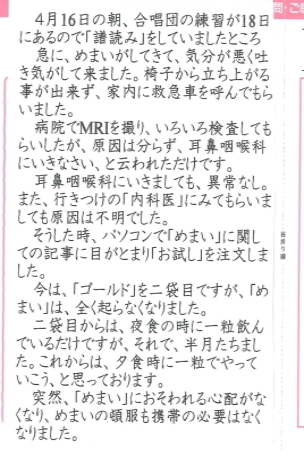 問・ご
4月16日の朝、合唱団の練習が18日
にあるので「譜読み」をしていましたところ
急に、めまいがしてきて、気分が悪く吐
き気がして来ました。椅子から立ち上がる
事が出来ず、家内に救急車を呼んでもら
いました。
病院でMRIを撮り、いろいろ検査しても
らいしたが、原因は分らず、耳鼻咽喉科
にいきなさい、と云われただけです。
耳鼻咽喉科にいきましても、異常なし。
また、行きつけの「内科医」にみてもらいま
しても原因は不明でした。
そうした時、パソコンで「めまい」に関し
ての記事に目がとまり「お試し」を注文しま
した。
今は、「ゴールド」を二袋目ですが、「め
まい」は、全く起らなくなりました。
二袋目からは、夜食の時に一粒飲ん
でいるだけですが、それで、半月たちまし
た。これからは、夕食時に一粒でやって
いこう、と思っております。
突然、「めまい」におそわれる心配がな
くなり、めまいの頓服も携帯の必要はなく
なりました。